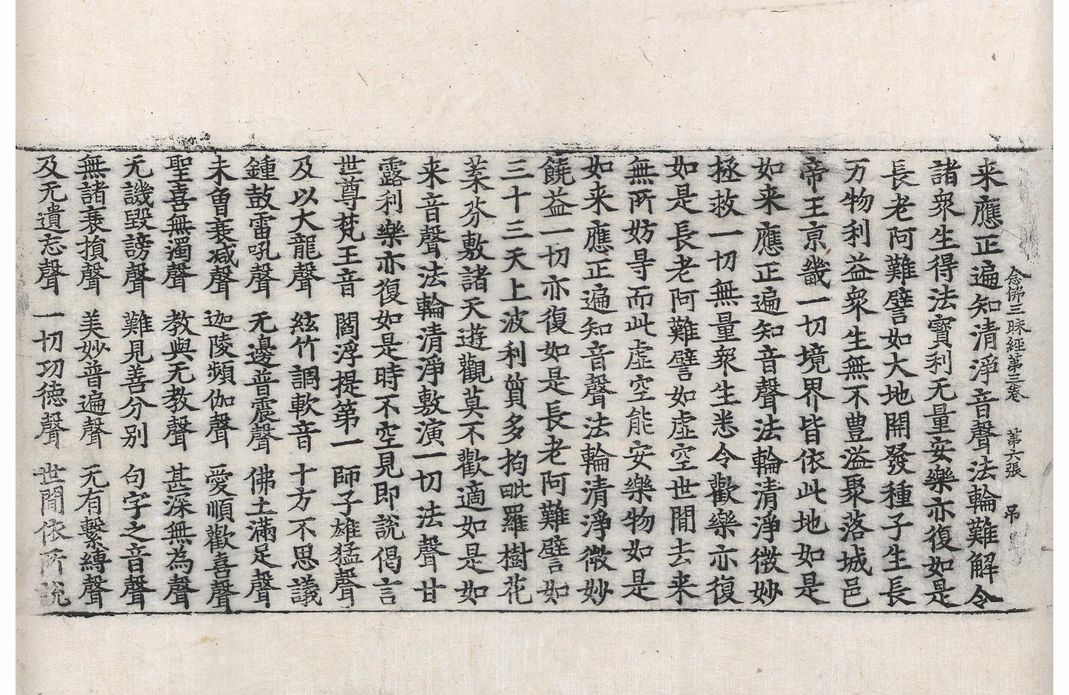 念佛三昧經第三卷 第六張 吊
来應正遍知清淨音聲法輪難解令
諸衆生得法寶利无量安樂亦復如是
長老阿難譬如大地開發種子生長
万物利益衆生無不豊溢聚落城邑
帝王京畿一切境界皆依此地如是
如来應正遍知音聲法輪清淨微妙
拯救一切無量衆生悉令歡樂亦復
如是長老阿難譬如虛空世間去来
無所妨㝵而此虛空能安樂物如是
如来應正遍知音聲法輪清淨微妙
饒益一切亦復如是長老阿難譬如
三十三天上波利質多拘毗羅樹花
葉芬敷諸天遊觀莫不歡適如是如
来音聲法輪清淨敷演一切法聲甘
露利樂亦復如是時不空見即說偈言
世尊梵王音 閻浮提第一 師子雄猛聲
及以大龍聲 絃竹調軟音 十方不思議
鍾鼓雷吼聲 无邊普震聲 佛土滿足聲
未曽衰减聲 迦陵頻伽聲 愛順歡喜聲
聖喜無濁聲 教與无教聲 甚深無為聲
无譏毀謗聲 難見善分別 句字之音聲
無諸衰損聲 美妙普遍聲 无有繫縛聲
及无遺忘聲 一切功徳聲 世間依所說